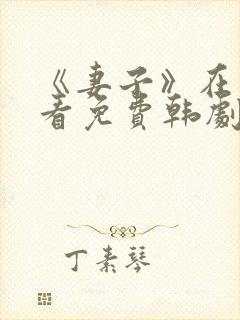 《妻子》在
看免费韩剧
丁素琴